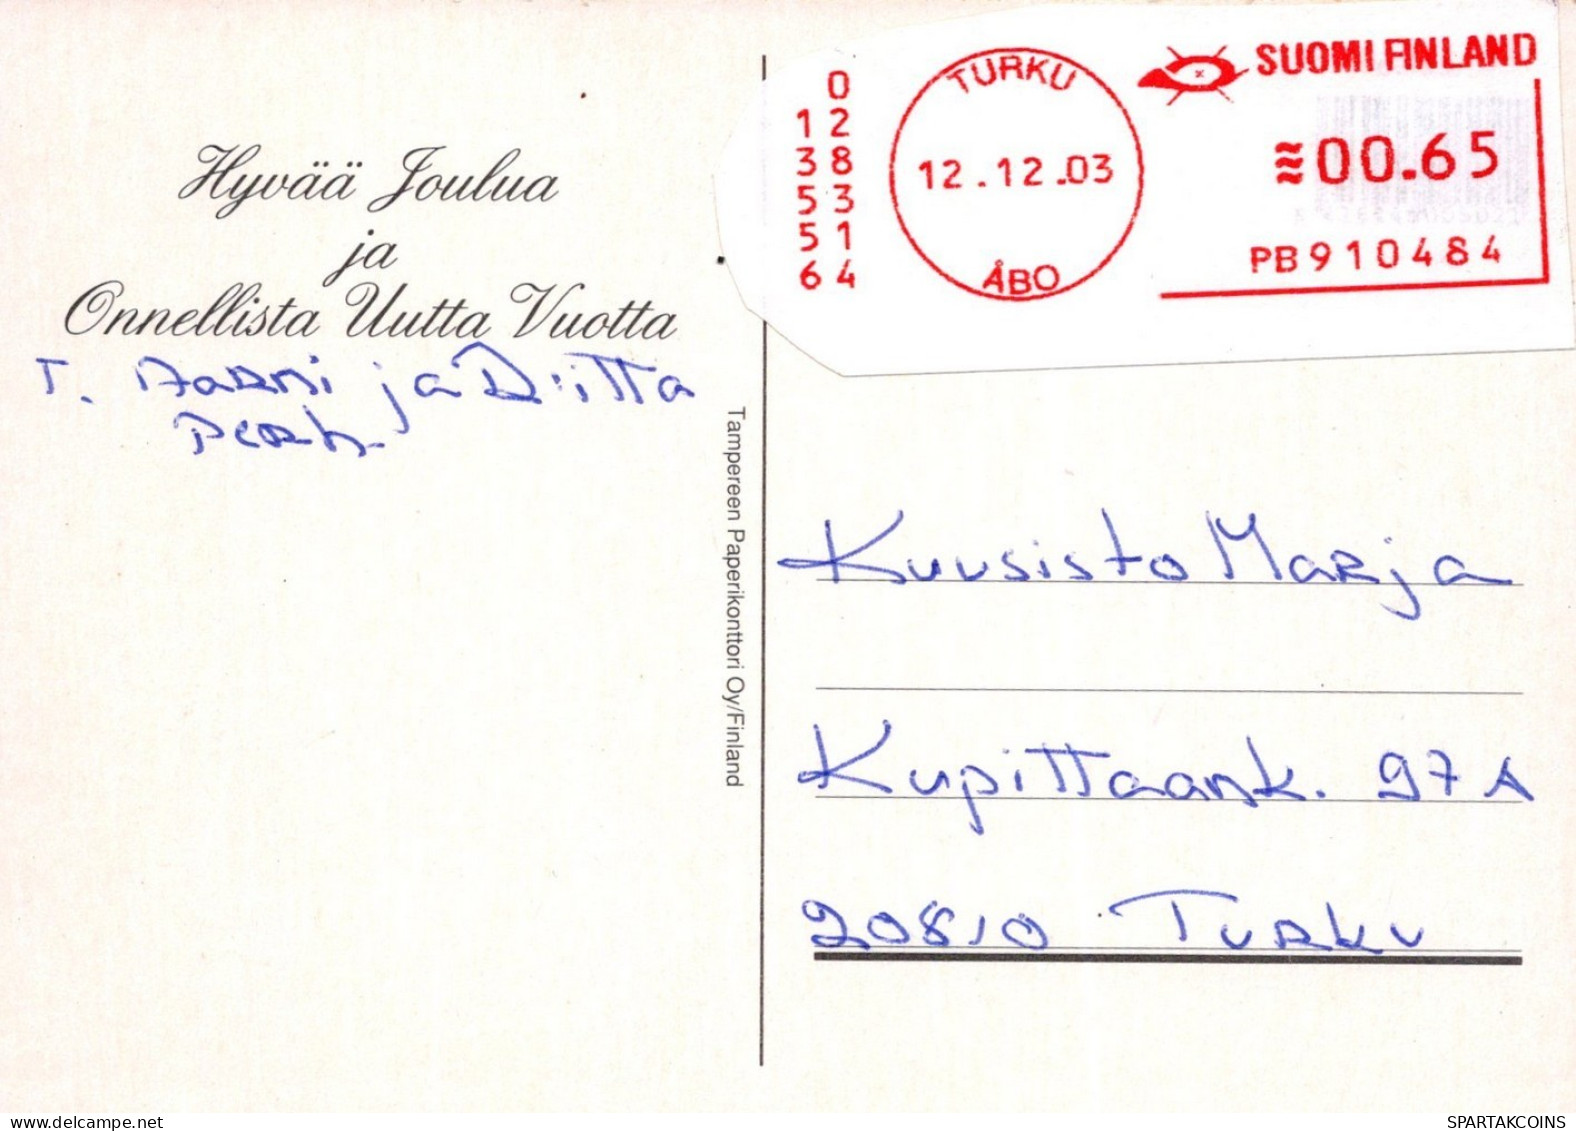 Hyvää Joulua
ja
Onnellista Uutta Vuotta
T. Aarni ja Riitta
Tampereen Paperikonttori Oy/Finland
0
12
38
53
51
64
TURKU
12.12.03
ÅBO
SUOMI FINLAND
00.65
PB910484
Kuusisto Marja
Kupittaank. 97 A
20810 Turku
SPARTAKCOINS